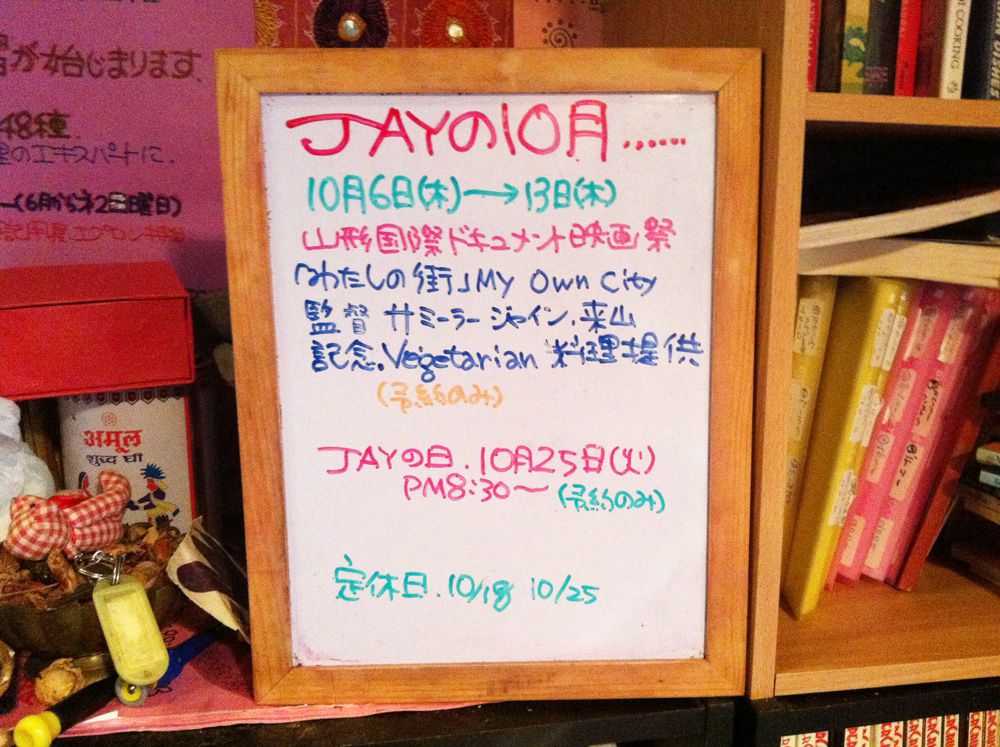 が始じまります、
48種
理のエキスパートに、
(6月から第2日曜日)
COOKING
JAYの10月......
10月6日(木)→13日(木)
山形国際ドキュメント映画祭
「わたしの街」My Own City
監督 サミーラー ジャイン.来山
記念.Vegetarian 料理提供
(予約のみ)
JAYの日.10月25日(火)
PM8:30〜 (予約のみ)
定休日.10/18 10/25
अमूल
शुद्ध घी